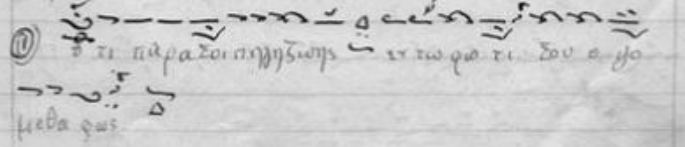 ὅ τι παρα σοι πηγη ζωης εν τω φω τι σου ο ψο
μεθα φως